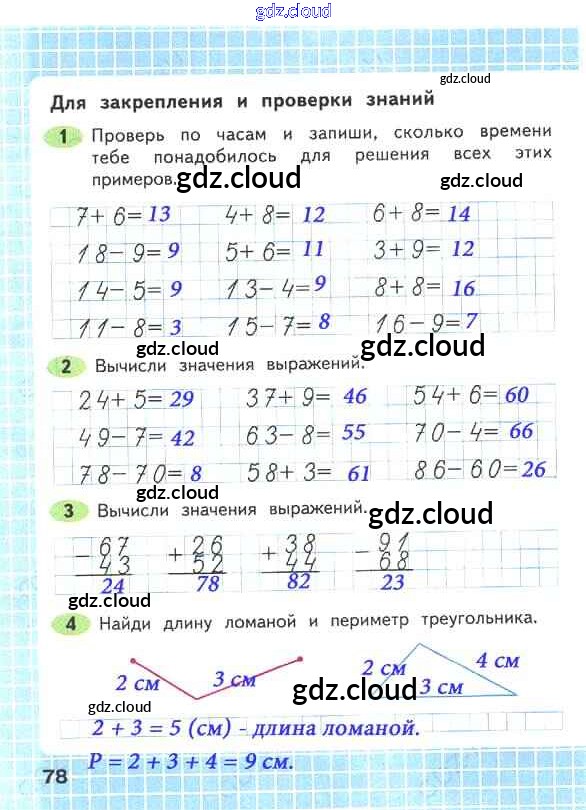 gdz.cloud
gdz.cloud
Для закрепления и проверки знаний
1 Проверь по часам и запиши, сколько времени
тебе понадобилось для решения всех этих
примеров.
gdz.cloud gdz.cloud
7+ 6= 13 4+ 8= 12 6+ 8= 14
18- 9= 9 5+ 6= 11 3+ 9= 12
14- 5= 9 13- 4= 9 8+ 8= 16
11- 8= 3 15- 7= 8 16- 9= 7
gdz.cloud gdz.cloud
2 Вычисли значения выражений.
24+ 5= 29 37+ 9= 46 54+ 6= 60
49- 7= 42 63- 8= 55 70- 4= 66
78- 70= 8 58+ 3= 61 86- 60= 26
gdz.cloud
3 Вычисли значения выражений.
gdz.cloud
- 67 + 26 + 38 - 91
43 52 44 68
24 78 82 23
gdz.cloud
4 Найди длину ломаной и периметр треугольника.
2 см 3 см 2 см 4 см
3 см
gdz.cloud
gdz.cloud
2 + 3 = 5 (см) - длина ломаной.
P = 2 + 3 + 4 = 9 см.
78